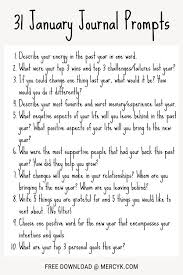 31 January Journal Prompts
1. Describe your energy in the past year in one word.
2. What were your top 3 wins and top 3 challenges/failures last year?
3. If you could change one thing last year, what would it be? How would you do it differently?
4. Describe your most favorite and worst memory/experience last year.
5. What negative aspects of your life will you leave behind in the past year? What positive aspects of your life will you bring to the new year?
6. Who were the most supportive people that had your back this past year? How did they help you grow?
7. What changes will you make in your relationships? Whom are you bringing with you to the new year? Whom are you leaving behind?
8. Write 5 things you are grateful for and 5 things you would like to vent about. (No filter)
9. Choose one positive word for the new year that encompasses your intentions and goals
10. What are your top 3 personal goals this year?
FREE DOWNLOAD @ MERCYK.COM